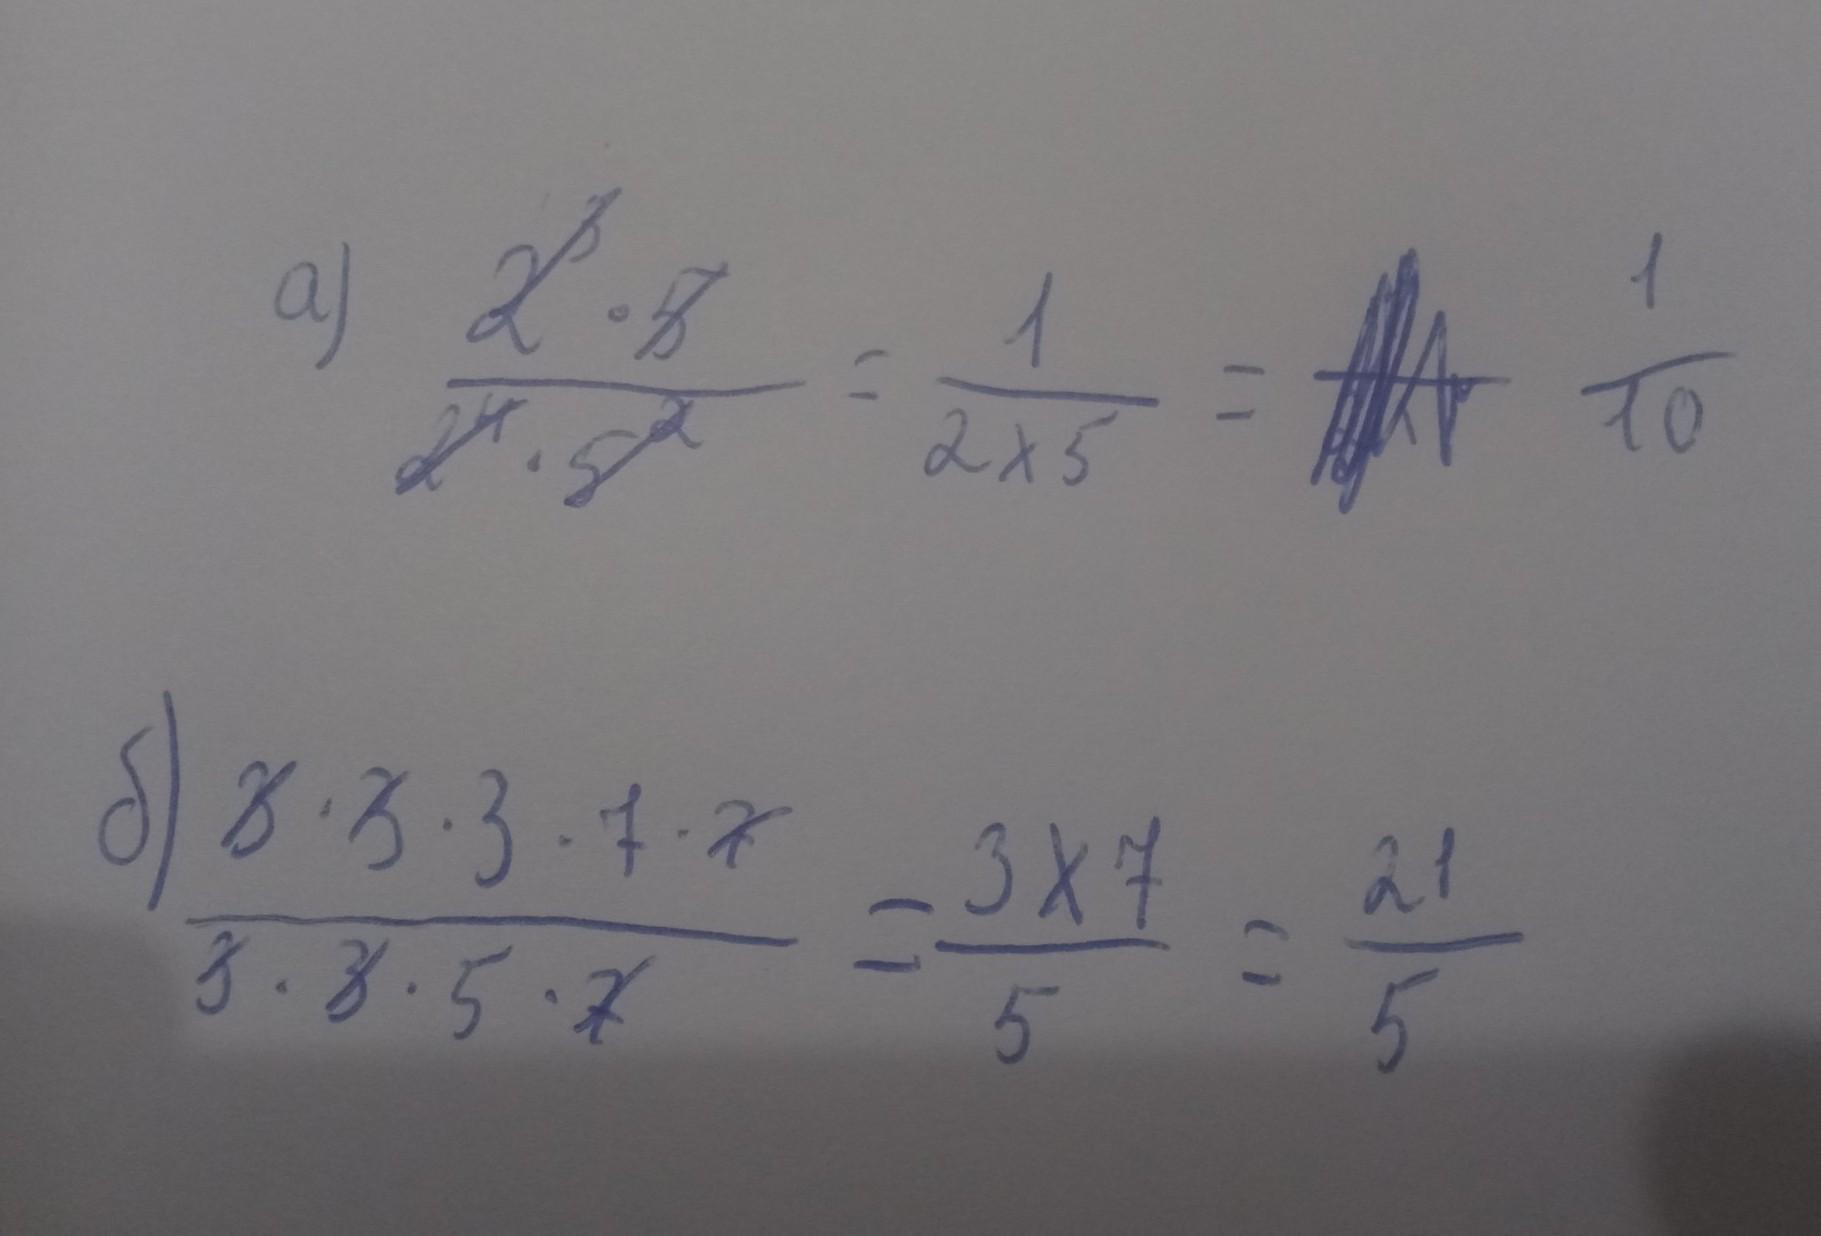 а) 2³ · 5 / 2⁴ · 5² = 1 / 2 x 5 = 1 / 10
б) 3 · 3 · 3 · 7 · 7 / 3 · 3 · 5 · 7 = 3 x 7 / 5 = 21 / 5